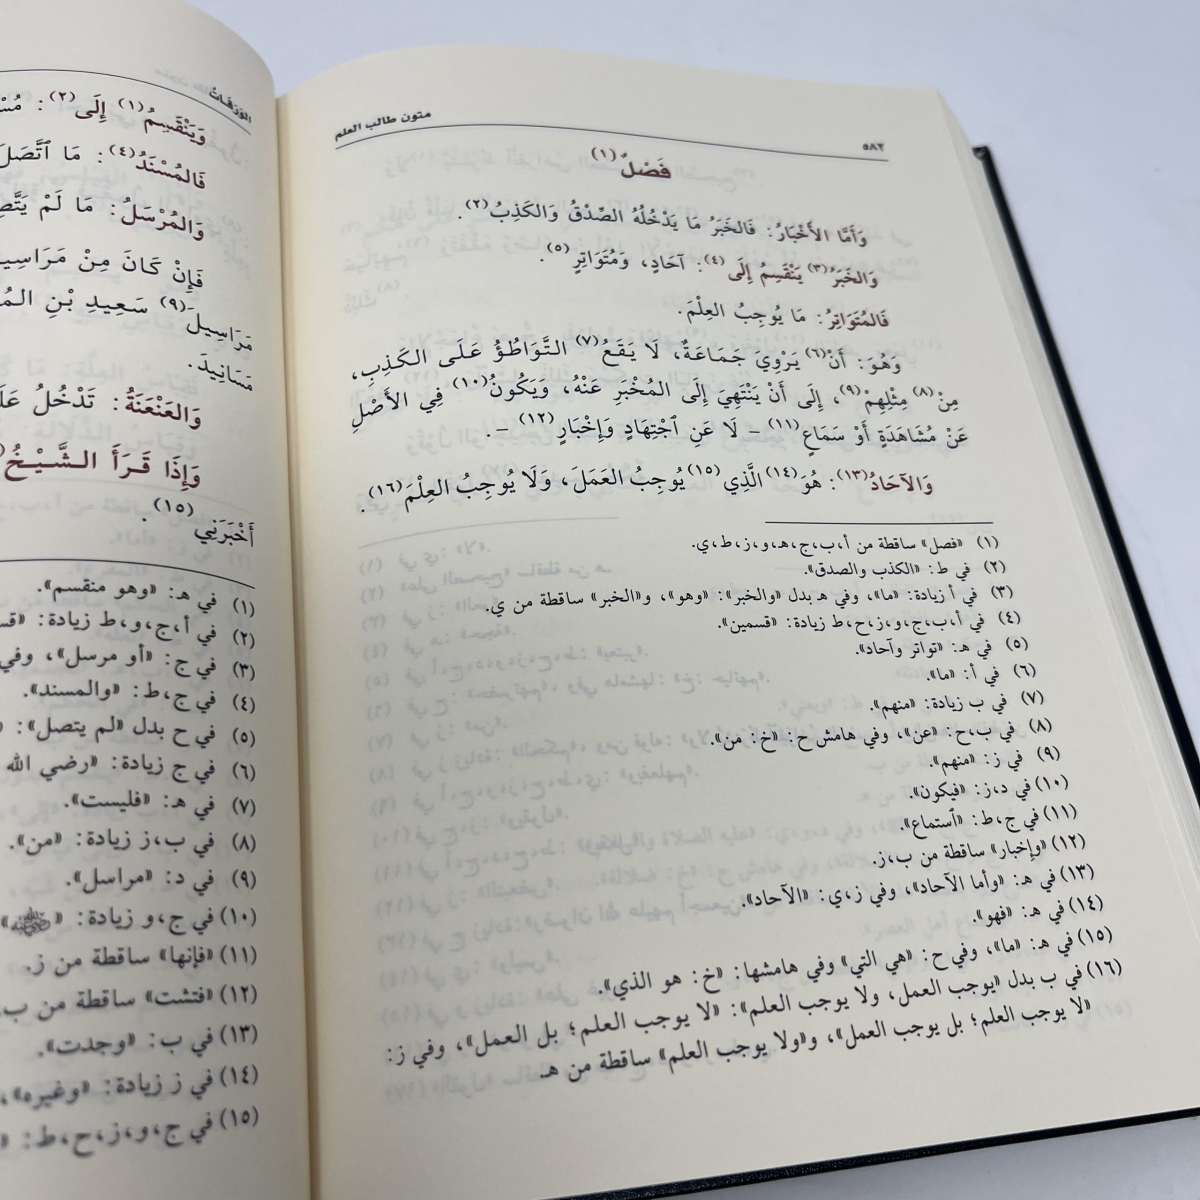 ٥٨٢
متون طالب العلم
فَصْلٌ(١)
وَأَمَّا الأَخْبَارُ: فَالخَبَرُ مَا يَدْخُلُهُ الصِّدْقُ وَالكَذِبُ(٢).
وَالخَبَرُ(٣) يَنْقَسِمُ إِلَى(٤): آحَادٍ، وَمُتَوَاتِرٍ(٥).
فَالمُتَوَاتِرُ: مَا يُوجِبُ العِلْمَ.
وَهُوَ: أَنْ(٦) يَرْوِيَ جَمَاعَةٌ، لَا يَقَعُ(٧) التَّوَاطُؤُ عَلَى الكَذِبِ،
مِنْ(٨) مِثْلِهِمْ(٩)، إِلَى أَنْ يَنْتَهِيَ إِلَى المُخْبَرِ عَنْهُ، وَيَكُونُ(١٠) فِي الأَصْلِ
عَنْ مُشَاهَدَةٍ أَوْ سَمَاعٍ(١١) - لَا عَنِ ٱجْتِهَادٍ وَإِخْبَارٍ(١٢) -.
وَالآحَادُ(١٣): هُوَ(١٤) الَّذِي(١٥) يُوجِبُ العَمَلَ، وَلَا يُوجِبُ العِلْمَ(١٦).
(١) «فصل» ساقطة من أ،ب،ج،هـ،و،ز،ط،ي.
(٢) في ط: «الكذب والصدق».
(٣) في أ زيادة: «ما»، وفي هـ بدل «والخبر»: «وهو»، و«الخبر» ساقطة من ي.
(٤) في أ،ب،ج،و،ز،ح،ط زيادة: «قسمين».
(٥) في هـ: «تواتر وآحاد».
(٦) في أ: «ما».
(٧) في ب زيادة: «منهم».
(٨) في ب،ح: «عن»، وفي هامش ح: «خ: من».
(٩) في ز: «منهم».
(١٠) في د،ز: «فيكون».
(١١) في ج،ط: «ٱستماع».
(١٢) «وإخبار» ساقطة من ب،ز.
(١٣) في هـ: «وأما الآحاد»، وفي ز،ي: «الآحاد».
(١٤) في هـ: «فهو».
(١٥) في هـ: «ما»، وفي ح: «هي التي» وفي هامشها: «خ: هو الذي».
(١٦) في ب بدل «يوجب العمل، ولا يوجب العلم»: «لا يوجب العلم؛ بل العمل»، وفي ز:
«لا يوجب العلم؛ بل يوجب العمل»، و«ولا يوجب العلم» ساقطة من هـ
الوَرَقَاتُ
وَيَنْقَسِمُ(١) إِلَى(٢):
فَالمُسْنَدُ(٤): مَا ٱتَّصَلَ
وَالمُرْسَلُ: مَا لَمْ
فَإِنْ كَانَ مِنْ
مَرَاسِيلَ(٩) سَعِيدِ بْنِ
مَسَانِيدَ.
وَالعَنْعَنَةُ: تَدْخُلُ
وَإِذَا قَرَأَ الشَّيْخُ
أَخْبَرَنِي(١٥).
(١) في هـ: «وهو منقسم».
(٢) في أ،ج،و،ط زيادة:
(٣) في ج: «أو مرسل»، وفي
(٤) في ج،ط: «والمسند».
(٥) في ح بدل «لم يتصل»:
(٦) في ج زيادة: «رضي الله
(٧) في هـ: «فليست».
(٨) في ب،ز زيادة: «من».
(٩) في د: «مراسل».
(١٠) في ج،و زيادة: «ﷺ»
(١١) «فإنها» ساقطة من ز.
(١٢) «فتشت» ساقطة من ب،
(١٣) في ب: «وجدت».
(١٤) في ز زيادة: «وغيره»،
(١٥) في ج،و،ز،ح،ط: